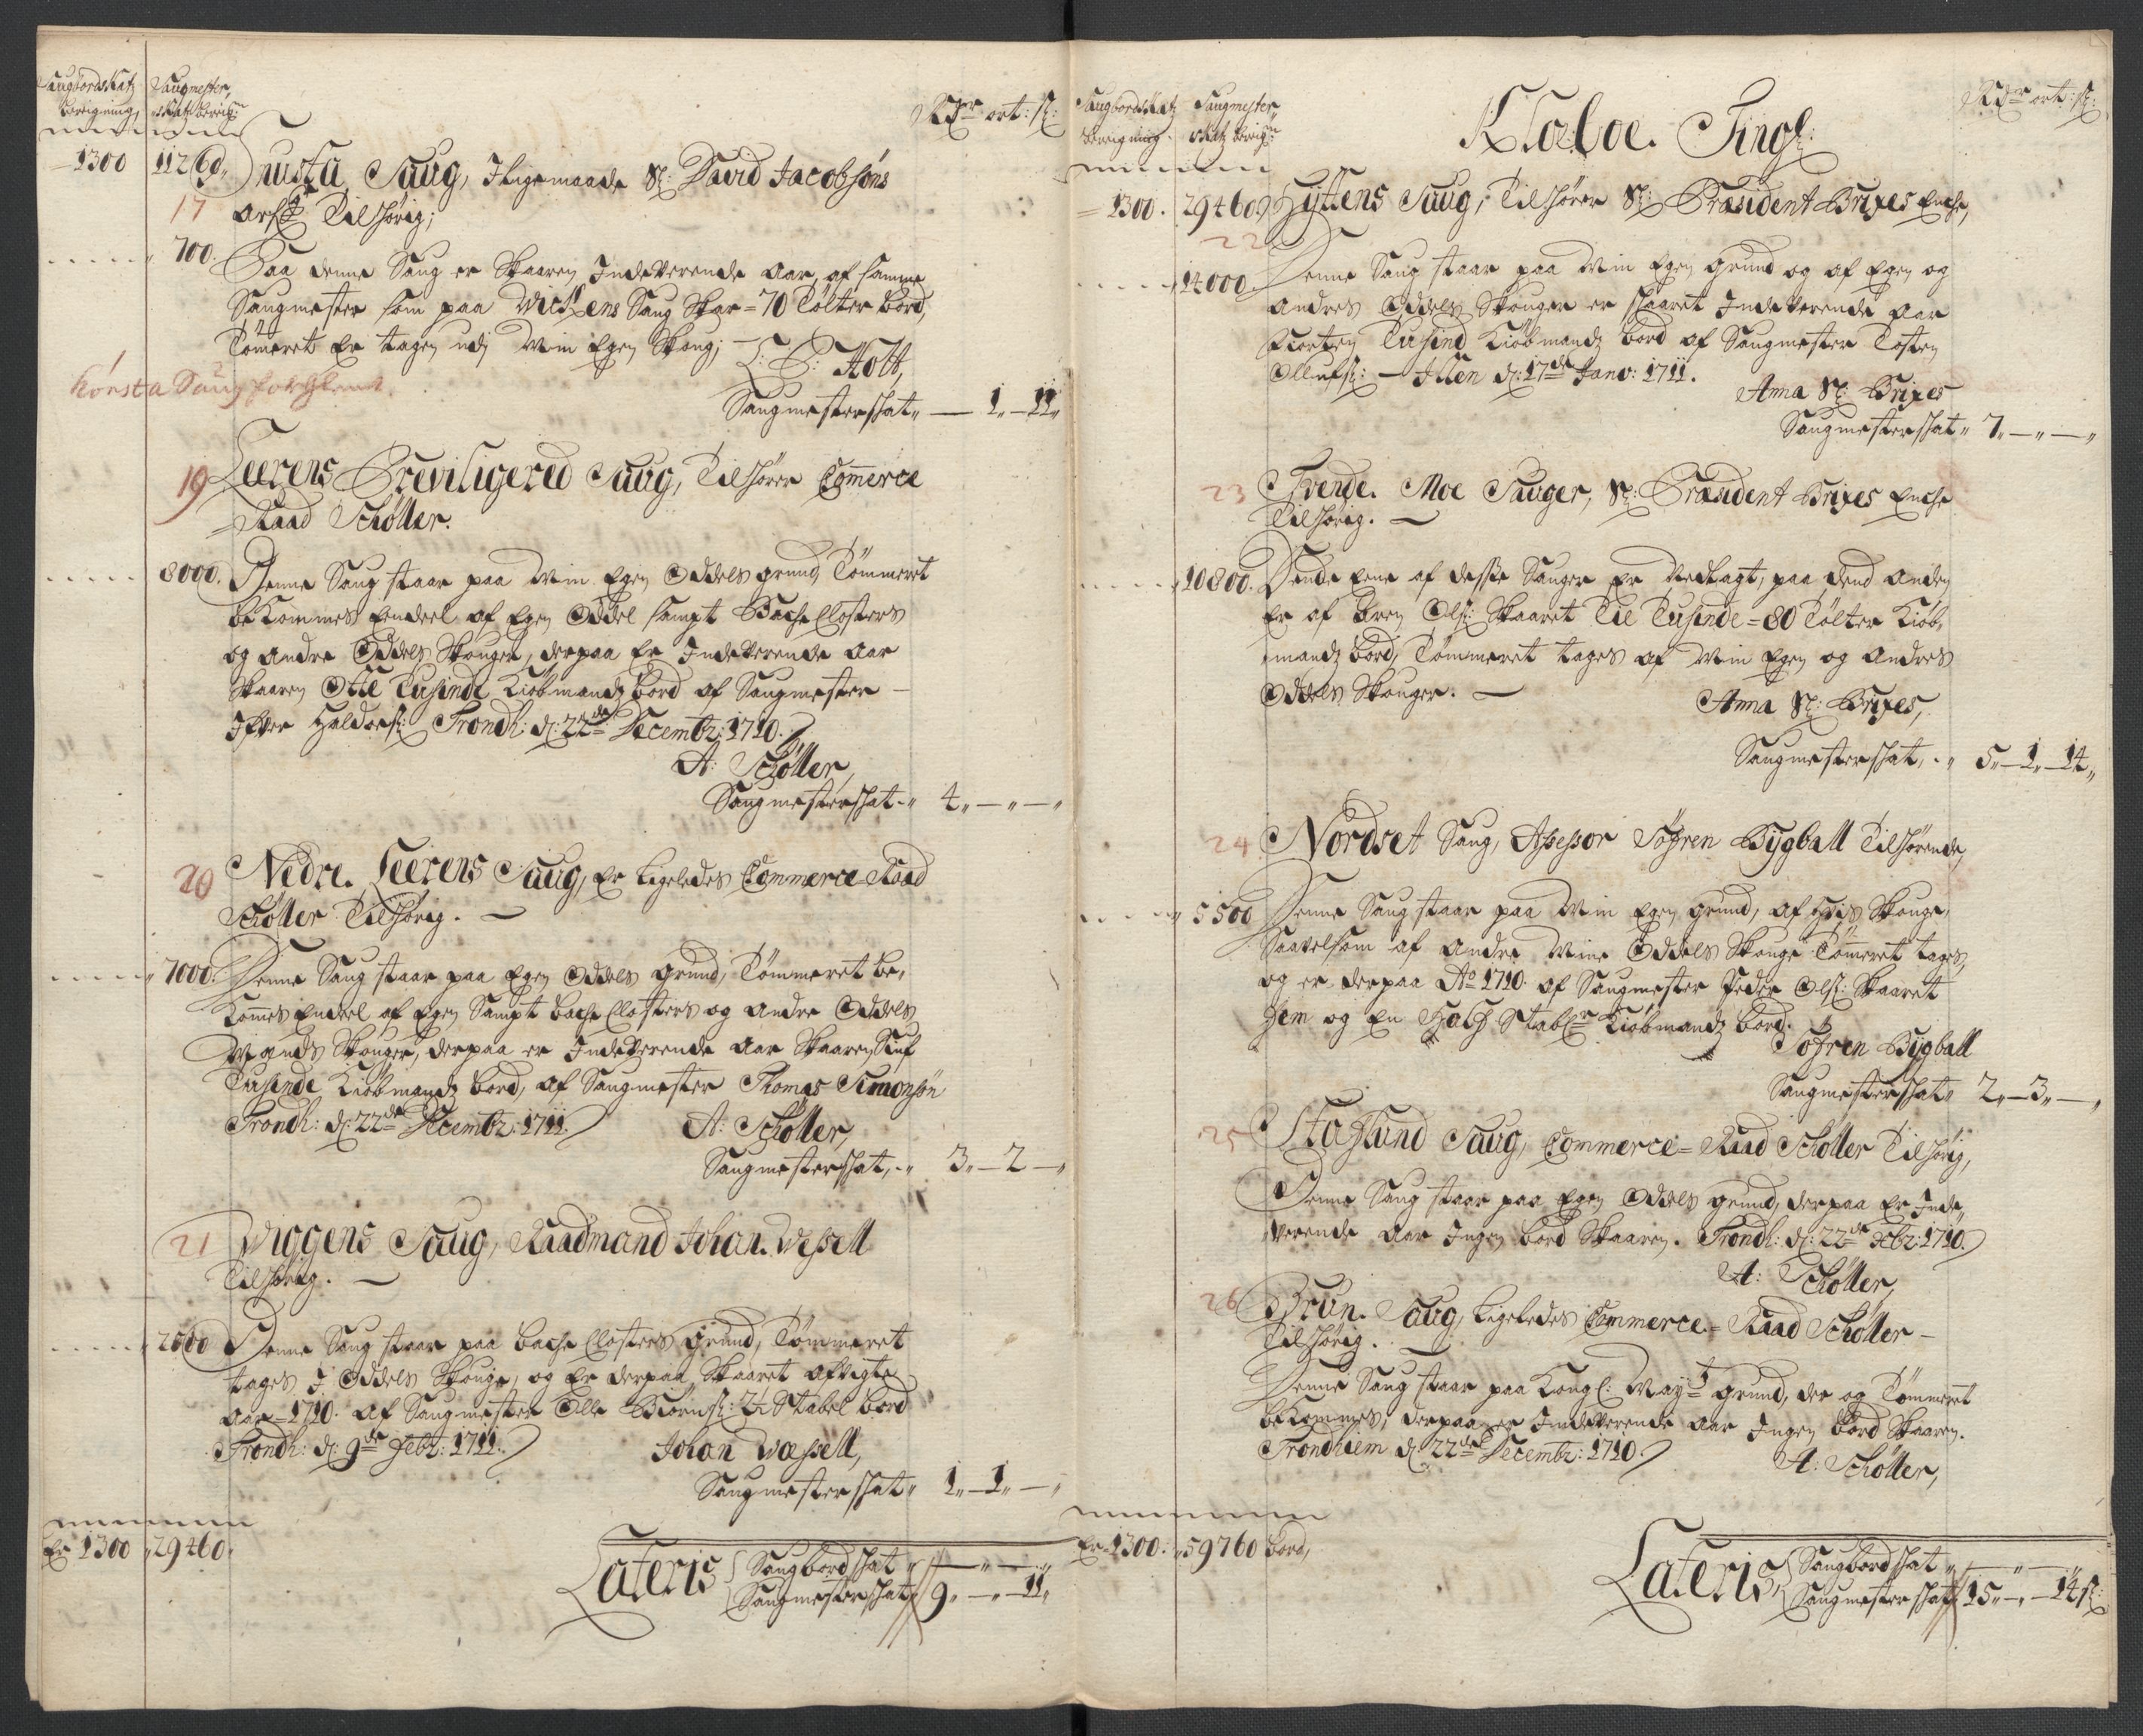 SaugbordsSkatz Saugmester
beregning Skatz beregn:
Rdr ort: sk:
1300 11260 Husta Saug, I ligemaade Sl: David Jacobsøns
17 arf: Tilhørig;
700. Paa denne Saug er Skaaren Indeværende Aar, af samme
Saugmester som paa Wichens Saug Skar = 70 Tølter bord,
Tømeret Er tagen udj Min Egen Skoug;
Holt,
Saugmesterskat 1 11
19 Leerens Previligered Saug, Tilhører Commerce
Raad Schøller.
8000. Denne Saug staar paa Min Egen Oddels grund, Tømmeret
beKommes Eendeel af Egen Oddel sampt Backe Closters
og andre Oddels Skouger, derpaa Er Indeværende Aar
Skaaren Otte Tusinde Kiøbmandz bord af Saugmester
Ifver Haldorss: Trondh: d: 22de Decembr: 1710.
A: Schøller,
Saugmesterskat 4
20 Nedre Leerens Saug, Er Ligeledes Commerce Raad
Schøller Tilhørig.
7000. Denne Saug staar paa Egen Oddels grund, Tømmeret be,
Kommes Endeel af Egen Sampt backe Closters og andre Oddels
Mands Skouger, derpaa er Indeværende Aar Skaaren Siuf
Tusinde Kiøbmandz bord, af Saugmester Thomas Simonsøn
Trondh: d: 22de Decembr: 1711. A: Schøller,
Saugmesterskat, 3 2
21 Wiggens Saug, Raadmand Johan Wessell
Tilhørig.
2500 Denne Saug staar paa backe Closters grund, Tømmeret
tages I Oddels Skouge, og Er derpaa Skaaret afvigte
Aar 1710. af Saugmester Olle Biørnss: 2½ Stabel bord
Trondh: d: 9de Febr: 1711. Johan Wessell,
Saugmesterskat 1 1
Er 1300 29460.
Lateris Saugbordskat
Saugmesterskat 9 11
SaugbordsSkatz Saugmester
beregning Skatz beregn:
Kloeboe Tingl:
Rdr ort: sk:
1300. 29460 Hyttens Saug, Tilhører Sl: Præsident Brixes Encke,
22
14000. Denne Saug staar paa Min Egen grund og af Egen og
andres Oddels Skouger er skaaret Indeværende Aar
Fiorten Tusind Kiøbmandz bord af Saugmester Tosten
Ollufss: d: 17de Janv: 1711.
Anna Sl: Brixes
Saugmesterskat 7
23 Tvende Moe Sauger, Sl: Præsident Brixes Encke
Tilhørig.
10800. Dend Eene af desse Sauger Er Nedlagt, paa Dend anden
Er af Oren Olss: Skaaret Tie Tusinde = 80 Tølter Kiøb,
mandz bord, Tømmeret tages af Min Egen og andres
Oddels Skouger.
Anna Sl: Brixes,
Saugmesterskat, 5 1 14
24 Nordset Saug, Assessor Søfren Bygball Tilhørende,
5500 Denne Saug staar paa Min Egen grund, af Hvis Skouge,
Saavelsom af andre Mine Oddels Skouge Tømeret tages,
og er derpaa Ao 1710. af Saugmester Peder Olss: Skaaret
Fem og En Half Stabler Kiøbmandz bord.
Søfren Bygball
Saugmesterskat 2 3
25 Stoflund Saug, Commerce-Raad Schøller Tilhørig,
Denne Saug staar paa Egen Oddels grund, derpaa Er Inde,
værende Aar Ingen bord Skaaren. Trondh: d: 22de Xbr: 1710.
A: Schøller,
26 Brun Saug, Ligeledes Commerce-Raad Schøller
Tilhørig.
Denne Saug staar paa Kongl: Mayts grund, der og Tømmeret
beKommes; derpaa er Indeværende Aar Ingen bord Skaaren.
Trondhiem d: 22de Decembr: 1710.
A: Schøller,
Er 1300. 59760 bord,
Lateris Saugbordskat
Saugmesterskat 15 14 sk: